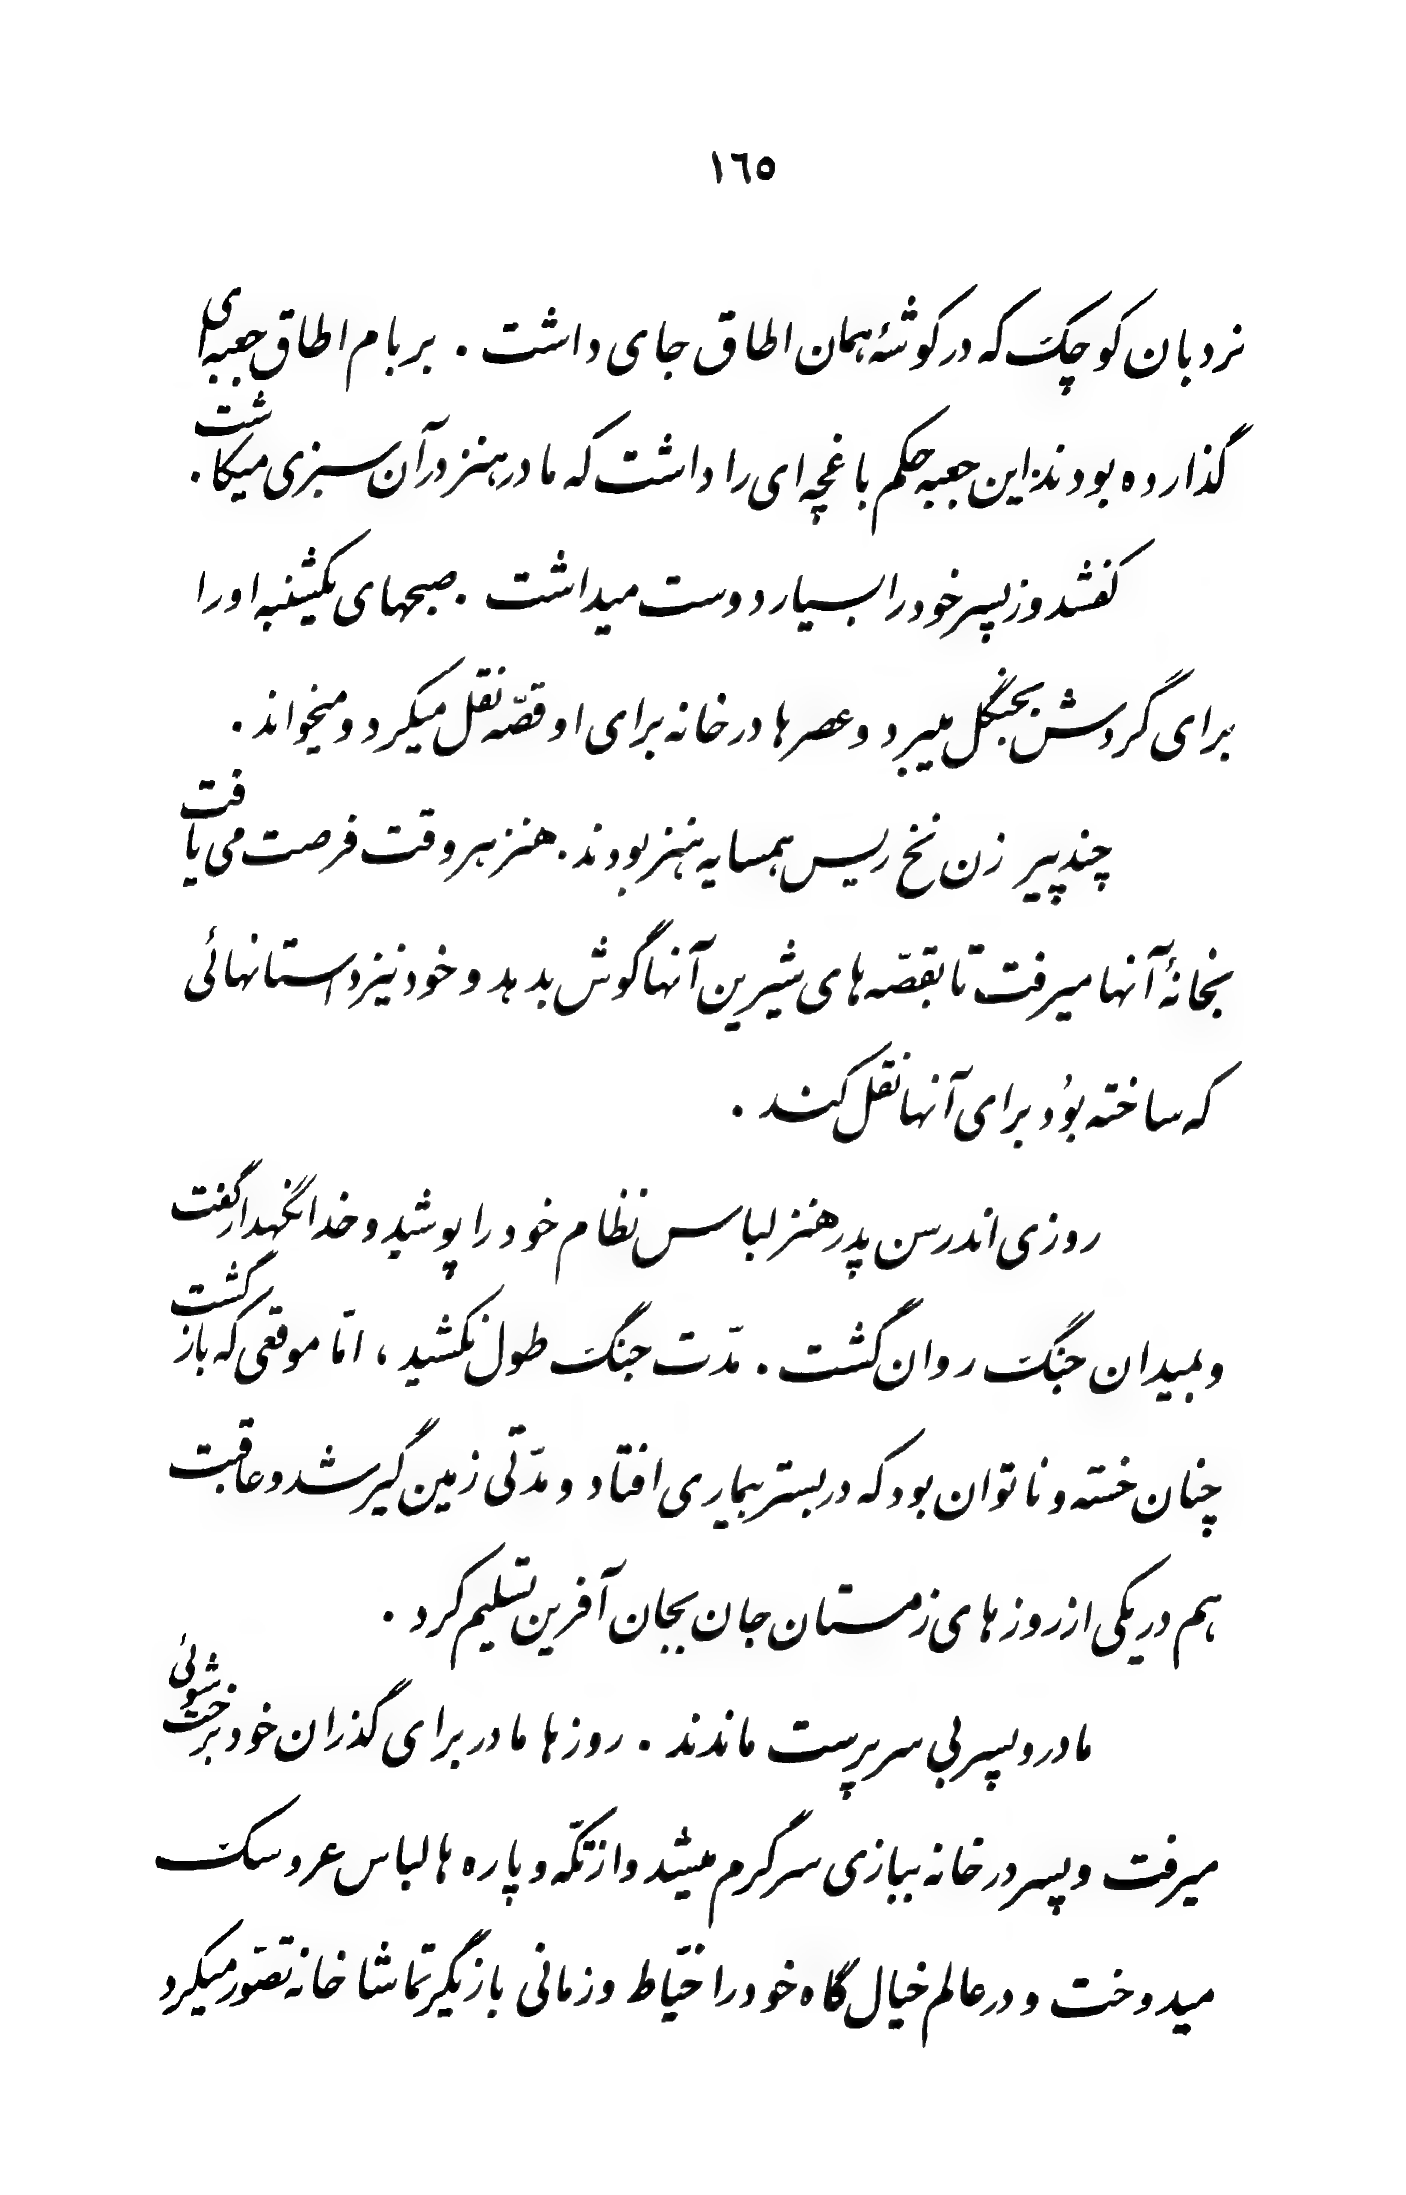 ١٦٥
نردبان کوچک که در گوشهٔ همان اطاق جای داشت . بر بام اطاق جعبه‌ای
گذارده بودند این جعبه حکم باغچه‌ای را داشت که مادر هنز در آن سبزی میکاشت .
کفشدوز پسر خود را بسیار دوست میداشت . صبحهای یکشنبه او را
برای گردش بجنگل میبرد و عصرها در خانه برای او قصّه نقل میکرد و میخواند .
چند پیر زن نخ ریس همسایه هنز بودند . هنز هر وقت فرصت می یافت
بخانهٔ آنها میرفت تا بقصّه های شیرین آنها گوش بدهد و خود نیز داستانهائی
که ساخته بُود برای آنها نقل کند .
روزی اندرسن پدر هنز لباس نظام خود را پوشید و خدا نگهدار گفت
و بمیدان جنگ روان گشت . مدّت جنگ طول نکشید ، امّا موقعی که باز گشت
چنان خسته و ناتوان بود که در بستر بیماری افتاد و مدّتی زمین گیر شد و عاقبت
هم در یکی از روزهای زمستان جان بجان آفرین تسلیم کرد .
مادر و پسر بی سرپرست ماندند . روزها مادر برای گذران خود برخت شوئی
میرفت و پسر در خانه ببازی سرگرم میشد و از تکّه و پاره ها لباس عروسک
میدوخت و در عالم خیال گاه خود را خیّاط و زمانی بازیگر تماشاخانه تصّور میکرد